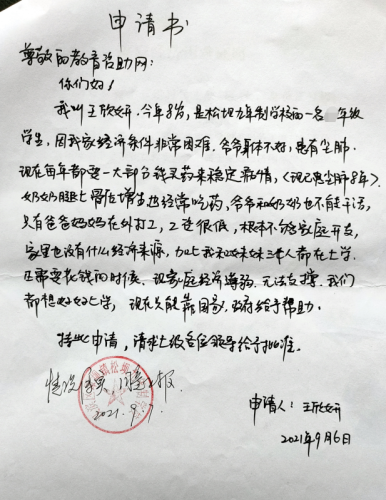 申请书
尊敬的教育资助网:
你们好!
我叫王欣妍,今年8岁,是松坝九年制学校一名 年级
学生,因我家经济条件非常困难,爷爷身体不好,患有尘肺.
现在每年都要一大部分钱买药来稳定病情,(现已患尘肺8年).
奶奶腿上骨质增生也经常吃药,爷爷和奶奶也不能干活,
只有爸爸妈妈在外打工,工资很低,根本不够家庭开支,
家里也没有什么经济来源,加上我和妹妹三个人都在上学.
正需要花钱的时候.现家庭经济薄弱.无法支撑.我们
都想好好上学,现在只能靠国家,政府给予帮助.
特此申请,请求上级各位领导给予批准.
情况属实,同意上报
2021.9.7
申请人:王欣妍
2021年9月6日